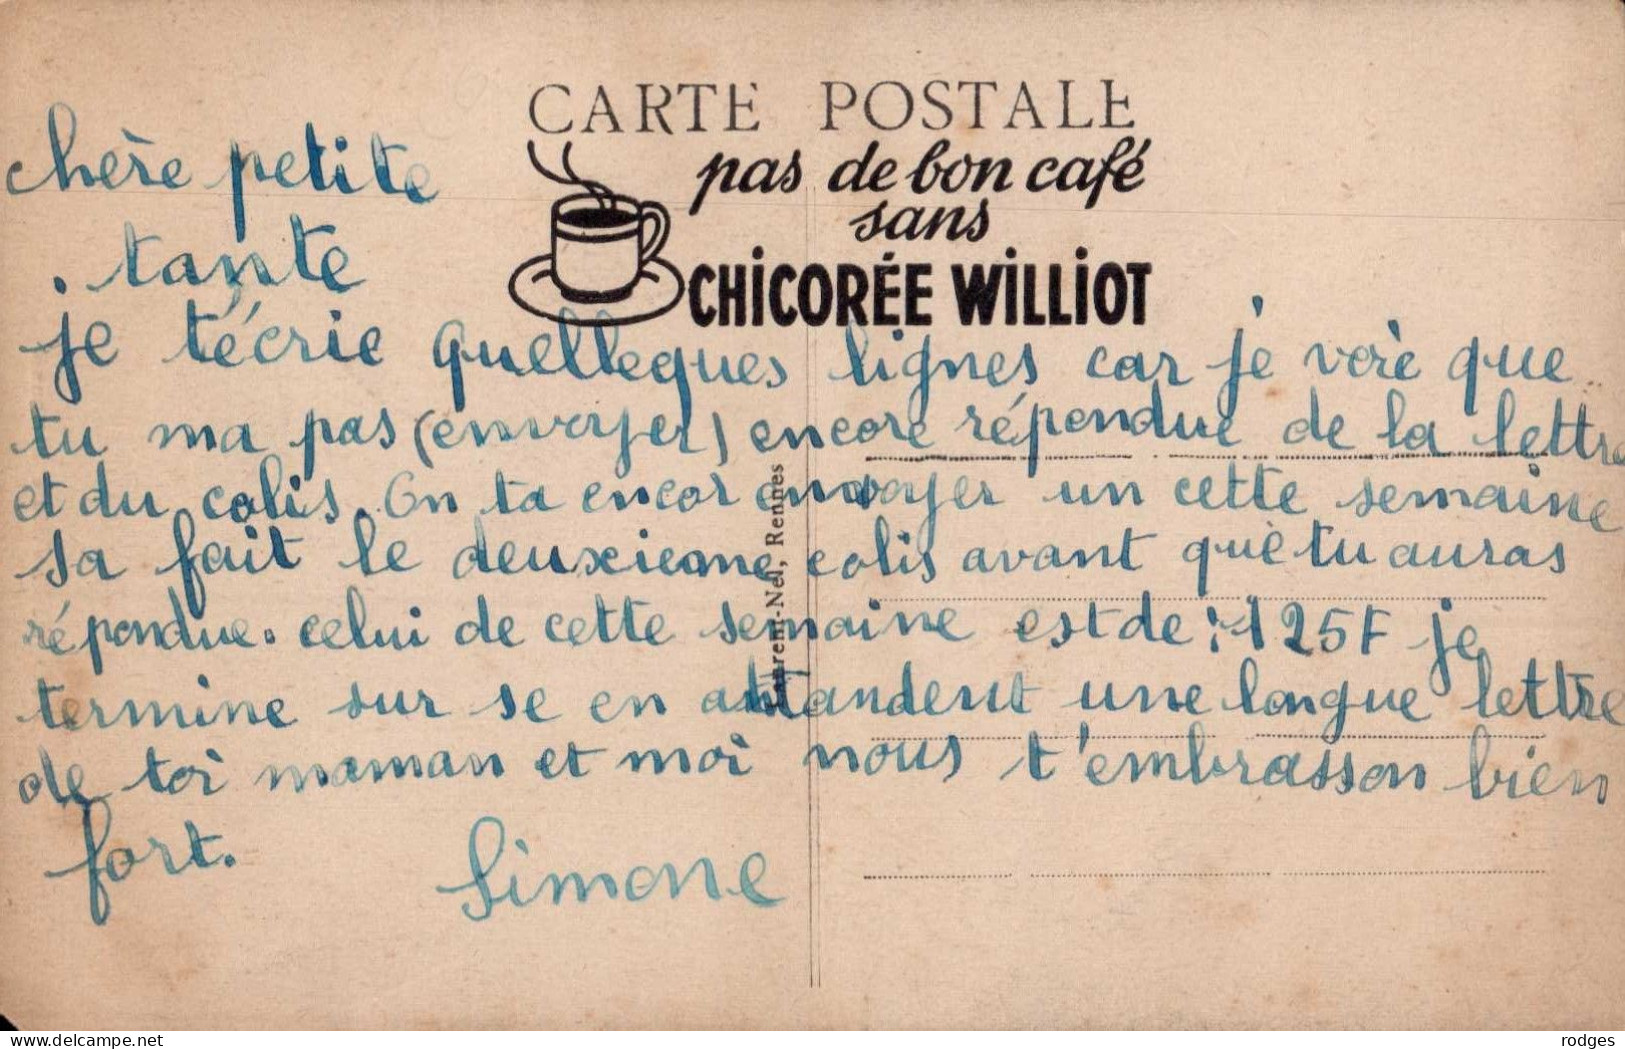 CARTE POSTALE
pas de bon café
sans
CHICORÉE WILLIOT
chère petite
tante
je técrie quelleques lignes car je voiè que
tu ma pas (envoyer) encore répendue de la lettre
et du colis. On ta encor envoyer un cette semaine
sa fait le deuxieme colis avant què tu auras
répendue. celui de cette semaine est de : 125F je
termine sur se en attandent une longue lettre
de toi maman et moi nous t'embrasson bien
fort.
Simone
Laurent-Nel, Rennes
delcampe.net
rodges